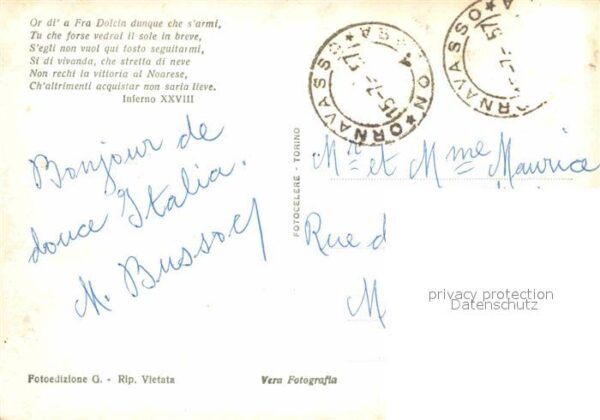 Or di' a Fra Dolcin dunque che s'armi,
Tu che forse vedrai il sole in breve,
S'egli non vuol qui tosto seguitarmi,
Sì di vivanda, che stretta di neve
Non rechi la vittoria al Noarese,
Ch'altrimenti acquistar non saria lieve.
Inferno XXVIII
ORNAVASSO * NO
15-7-57
ORNAVASSO
Bonjour de
douce Italia.
M.
FOTOCELERE - TORINO
Mr et Mme Maurice
Rue d
M
privacy protection
Datenschutz
Fotoedizione G. - Rip. Vietata
Vera Fotografia